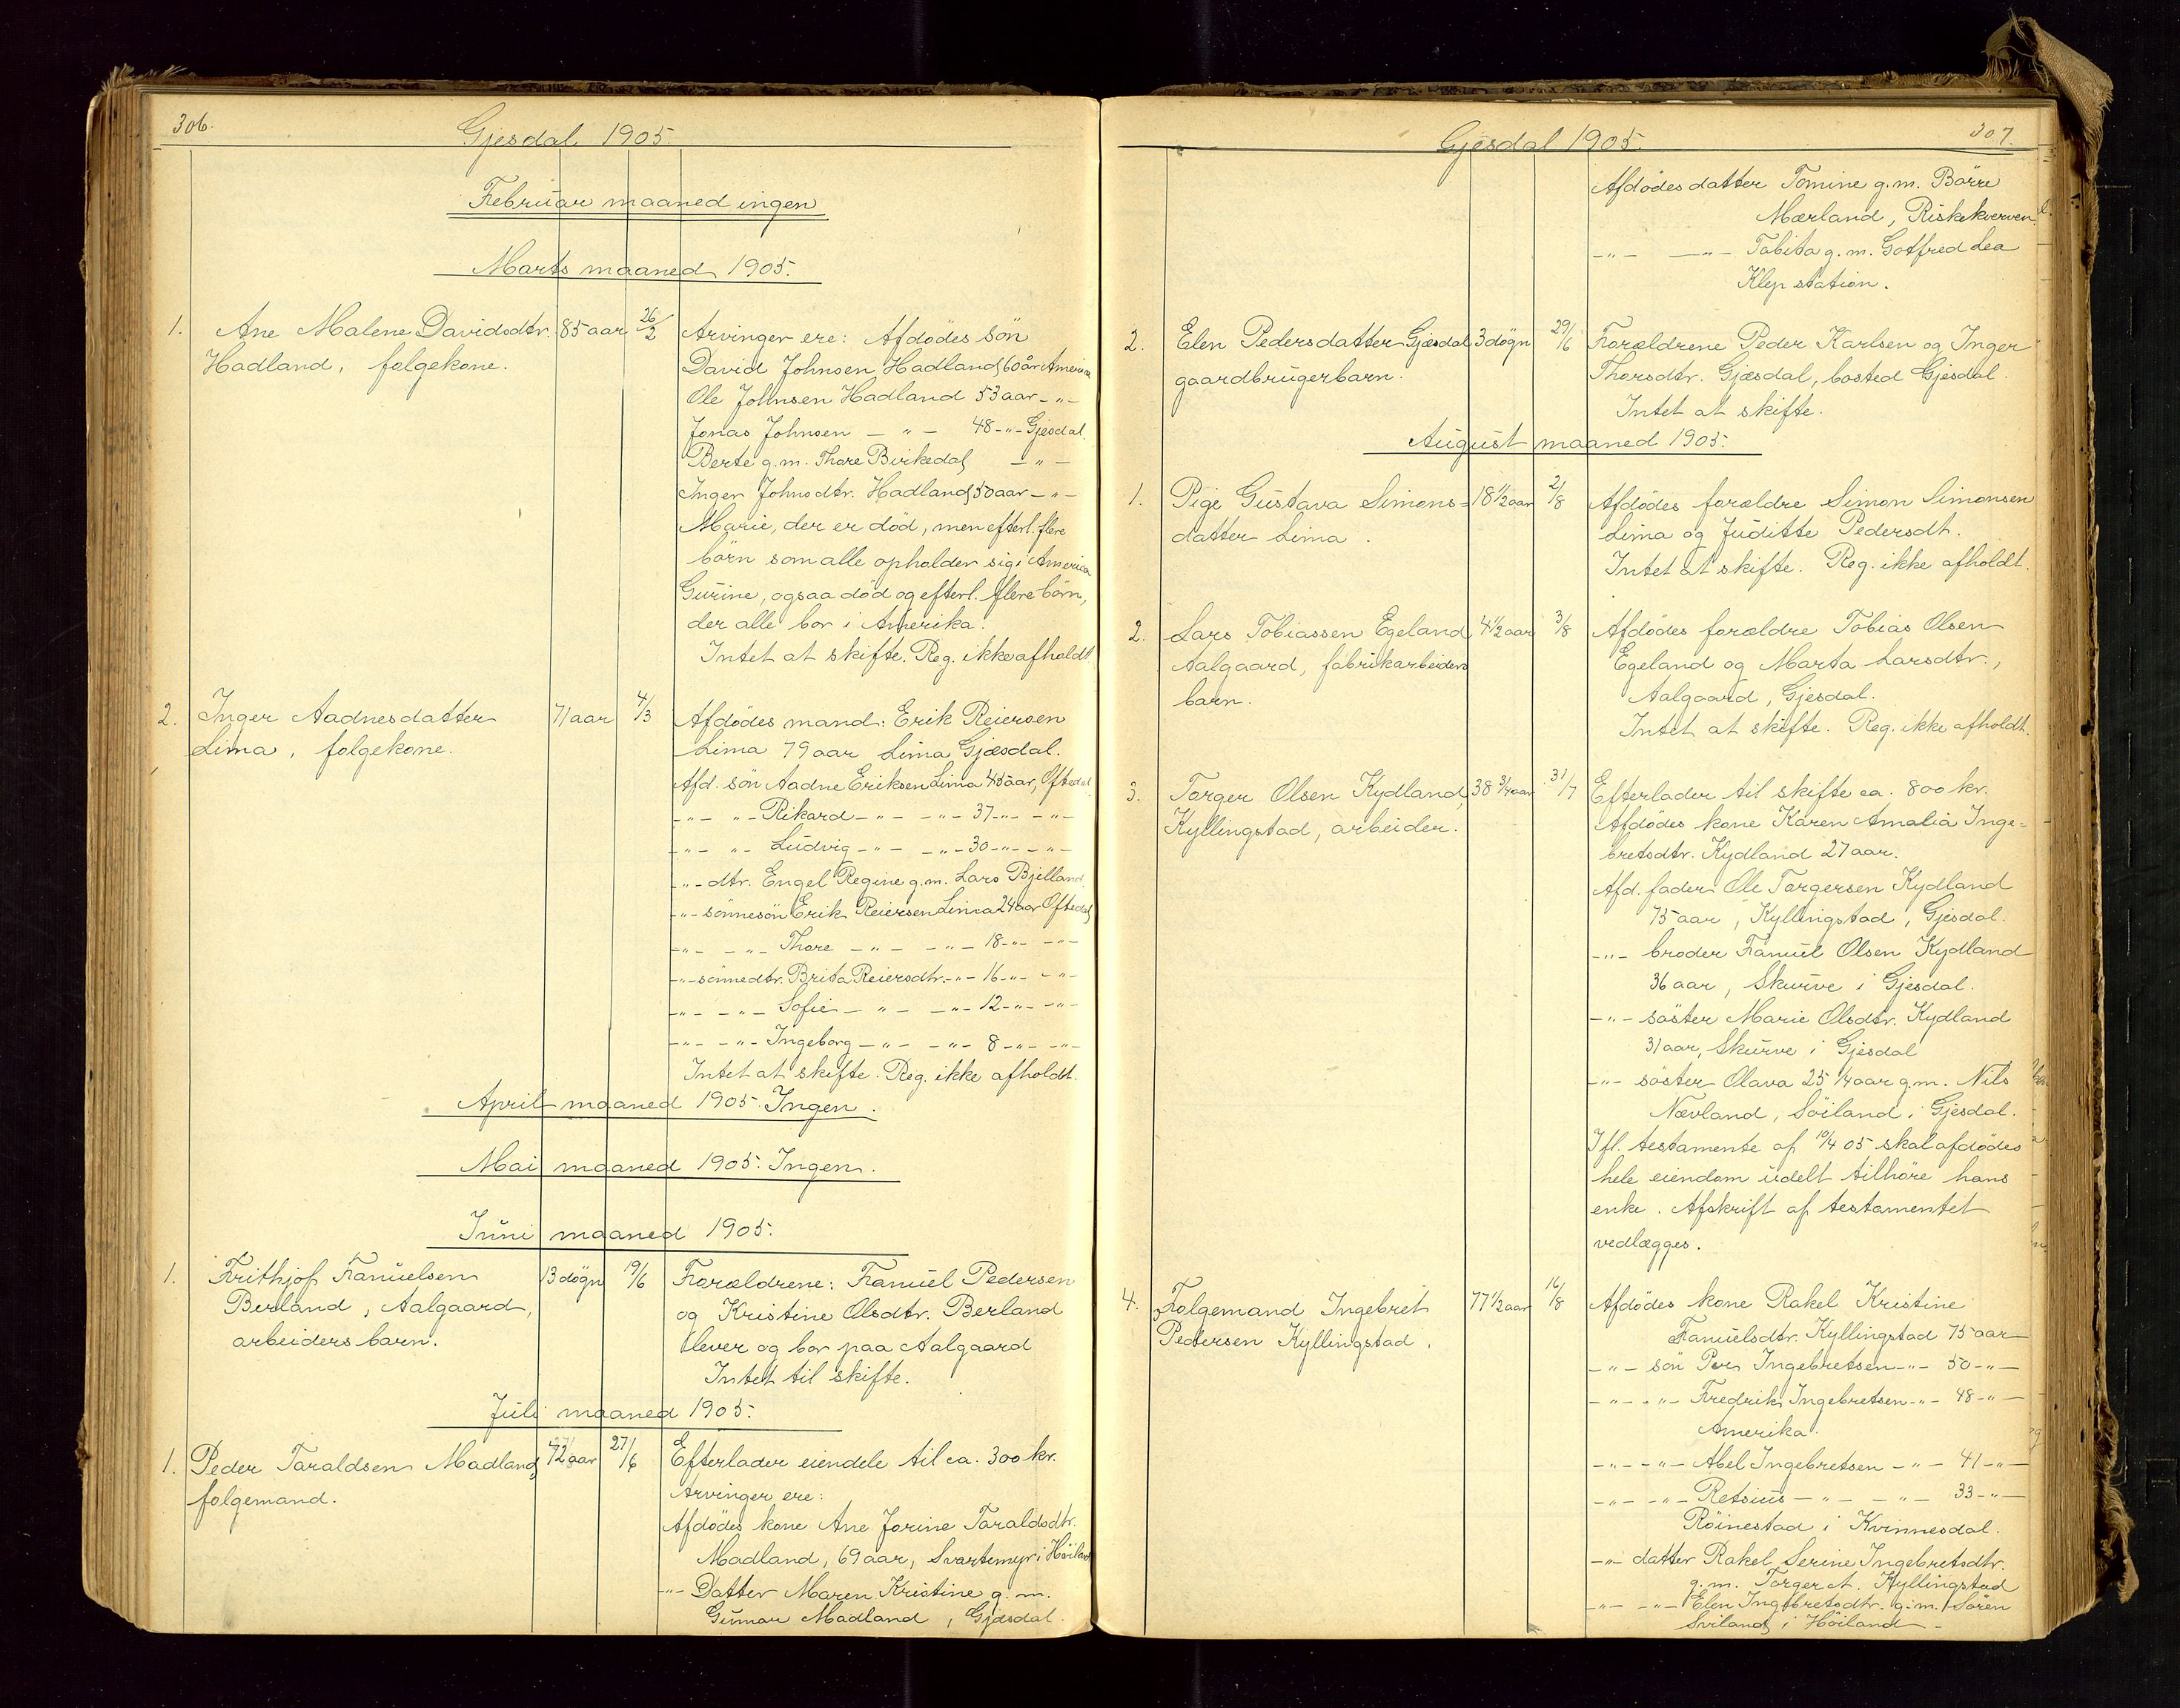 306.
Gjesdal 1905.
Februar maaned ingen
Marts maaned 1905.
1. Ane Malene Davidsdtr. 85 aar 26/2 Arvinger ere: Afdødes søn
Hadland, følgekone. David Johnsen Hadland 60 år America
Ole Johnsen Hadland 53 aar -"-
Jonas Johnsen -"- 48 -"- Gjesdal.
Berte g.m. Thore Birkedal -"-
Inger Johnsdtr. Hadland 50 aar -"-
Marie, der er død, men efterl. flere
børn som alle opholder sig i America
Gurine, ogsaa død og efterl. flere børn,
der alle bor i Amerika.
Intet at skifte. Reg. ikke afholdt
2. Inger Aadnesdatter 71 aar 4/3 Afdødes mand: Erik Reiersen
Lima, følgekone. Lima 79 aar Lima Gjæsdal.
Afd. søn Aadne Eriksen Lima 45 aar, Oftedal
-"- "- Rikard -"- -"- 37 -"- -"-
-"- "- Ludvig -"- -"- 30 -"- -"-
-"- dtr. Engel Regine g.m. Lars Bjelland.
-"- sønnesøn Erik Reiersen Lima 24 aar Oftedal
-"- -"- Thore -"- -"- 18 -"- -"-
-"- sønnedtr. Brita Reiersdtr. -"- 16 -"- -"-
-"- -"- Sofie -"- -"- 12 -"- -"-
-"- -"- Ingeborg -"- -"- 8 -"- -"-
Intet at skifte. Reg. ikke afholdt.
April maaned 1905 Ingen.
Mai maaned 1905. Ingen.
Juni maaned 1905.
1. Frithjof Fanuelsen 13 døgn 9/6 Forældrene: Fanuel Pedersen
Berland, Aalgaard, og Kristine Olsdtr. Berland
arbeiders barn. lever og bor paa Aalgaard
Intet til skifte.
Juli maaned 1905.
1. Peder Taraldsen Madland, 72 aar 27/6 Efterlader eiendele til ca. 300 kr.
følgemand. Arvinger ere:
Afdødes kone Ane Jorine Taraldsdtr.
Madland, 69 aar, Svartemyr i Høiland
-"- Datter Maren Kristine g.m.
Gunnar Madland, Gjæsdal.
307.
Gjesdal 1905.
Afdødes datter Tomine g.m. Børre
Mærland, Riskekverven
-"- -"- Tabita g.m. Gotfred Lea
Klep station.
2. Elen Pedersdatter Gjæsdal 3 døgn 29/6 Forældrene Peder Karlsen og Inger
gaardbrugerbarn. Thorsdtr. Gjæsdal, bosted Gjesdal.
Intet at skifte.
August maaned 1905.
1. Pige Gustava Simons= 18 1/2 aar 2/8 Afdødes forældre Simon Simonsen
datter Lima. Lima og Juditte Pedersdt.
Intet at skifte. Reg. ikke afholdt.
2. Lars Tobiassen Egeland 4 1/2 aar 3/8 Afdødes forældre Tobias Olsen
Aalgaard, fabrikarbeiders Egeland og Marta Larsdtr.,
barn. Aalgaard, Gjesdal.
Intet at skifte. Reg. ikke afholdt.
3. Torger Olsen Kydland, 38 3/4 aar 31/7 Efterlader til skifte ca. 800 kr.
Kyllingstad, arbeider. Afdødes kone Karen Amalia Inge=
bretsdtr. Kydland 27 aar.
Afd. fader Ole Torgersen Kydland
75 aar, Kyllingstad, Gjesdal.
-"- broder Fanuel Olsen Kydland
36 aar, Skurve i Gjesdal.
-"- søster Marie Olsdtr. Kydland
31 aar, Skurve i Gjesdal
-"- søster Olava 25 1/4 aar g.m. Nils
Nævland, Søiland i Gjesdal.
Ifl. testamente af 10/4 05 skal afdødes
hele eiendom udelt tilhøre hans
enke. Afskrift af testamentet
vedlægges.
4. Følgemand Ingebret 77 1/2 aar 16/8 Afdødes kone Rakel Kristine
Pedersen Kyllingstad. Fanuelsdtr. Kyllingstad 75 aar
-"- søn Per Ingebretsen -"- 50 -"-
-"- -"- Fredrik Ingebretsen -"- 48 -"-
Amerika.
-"- -"- Abel Ingebretsen -"- 41 -"-
-"- -"- Retsius -"- -"- 33 -"-
Røinestad i Kvinnesdal.
-"- datter Rakel Serine Ingebretsdtr.
g.m. Torger A. Kyllingstad
-"- -"- Elen Ingebretsdtr. g.m. Søren
Sviland i Høiland -